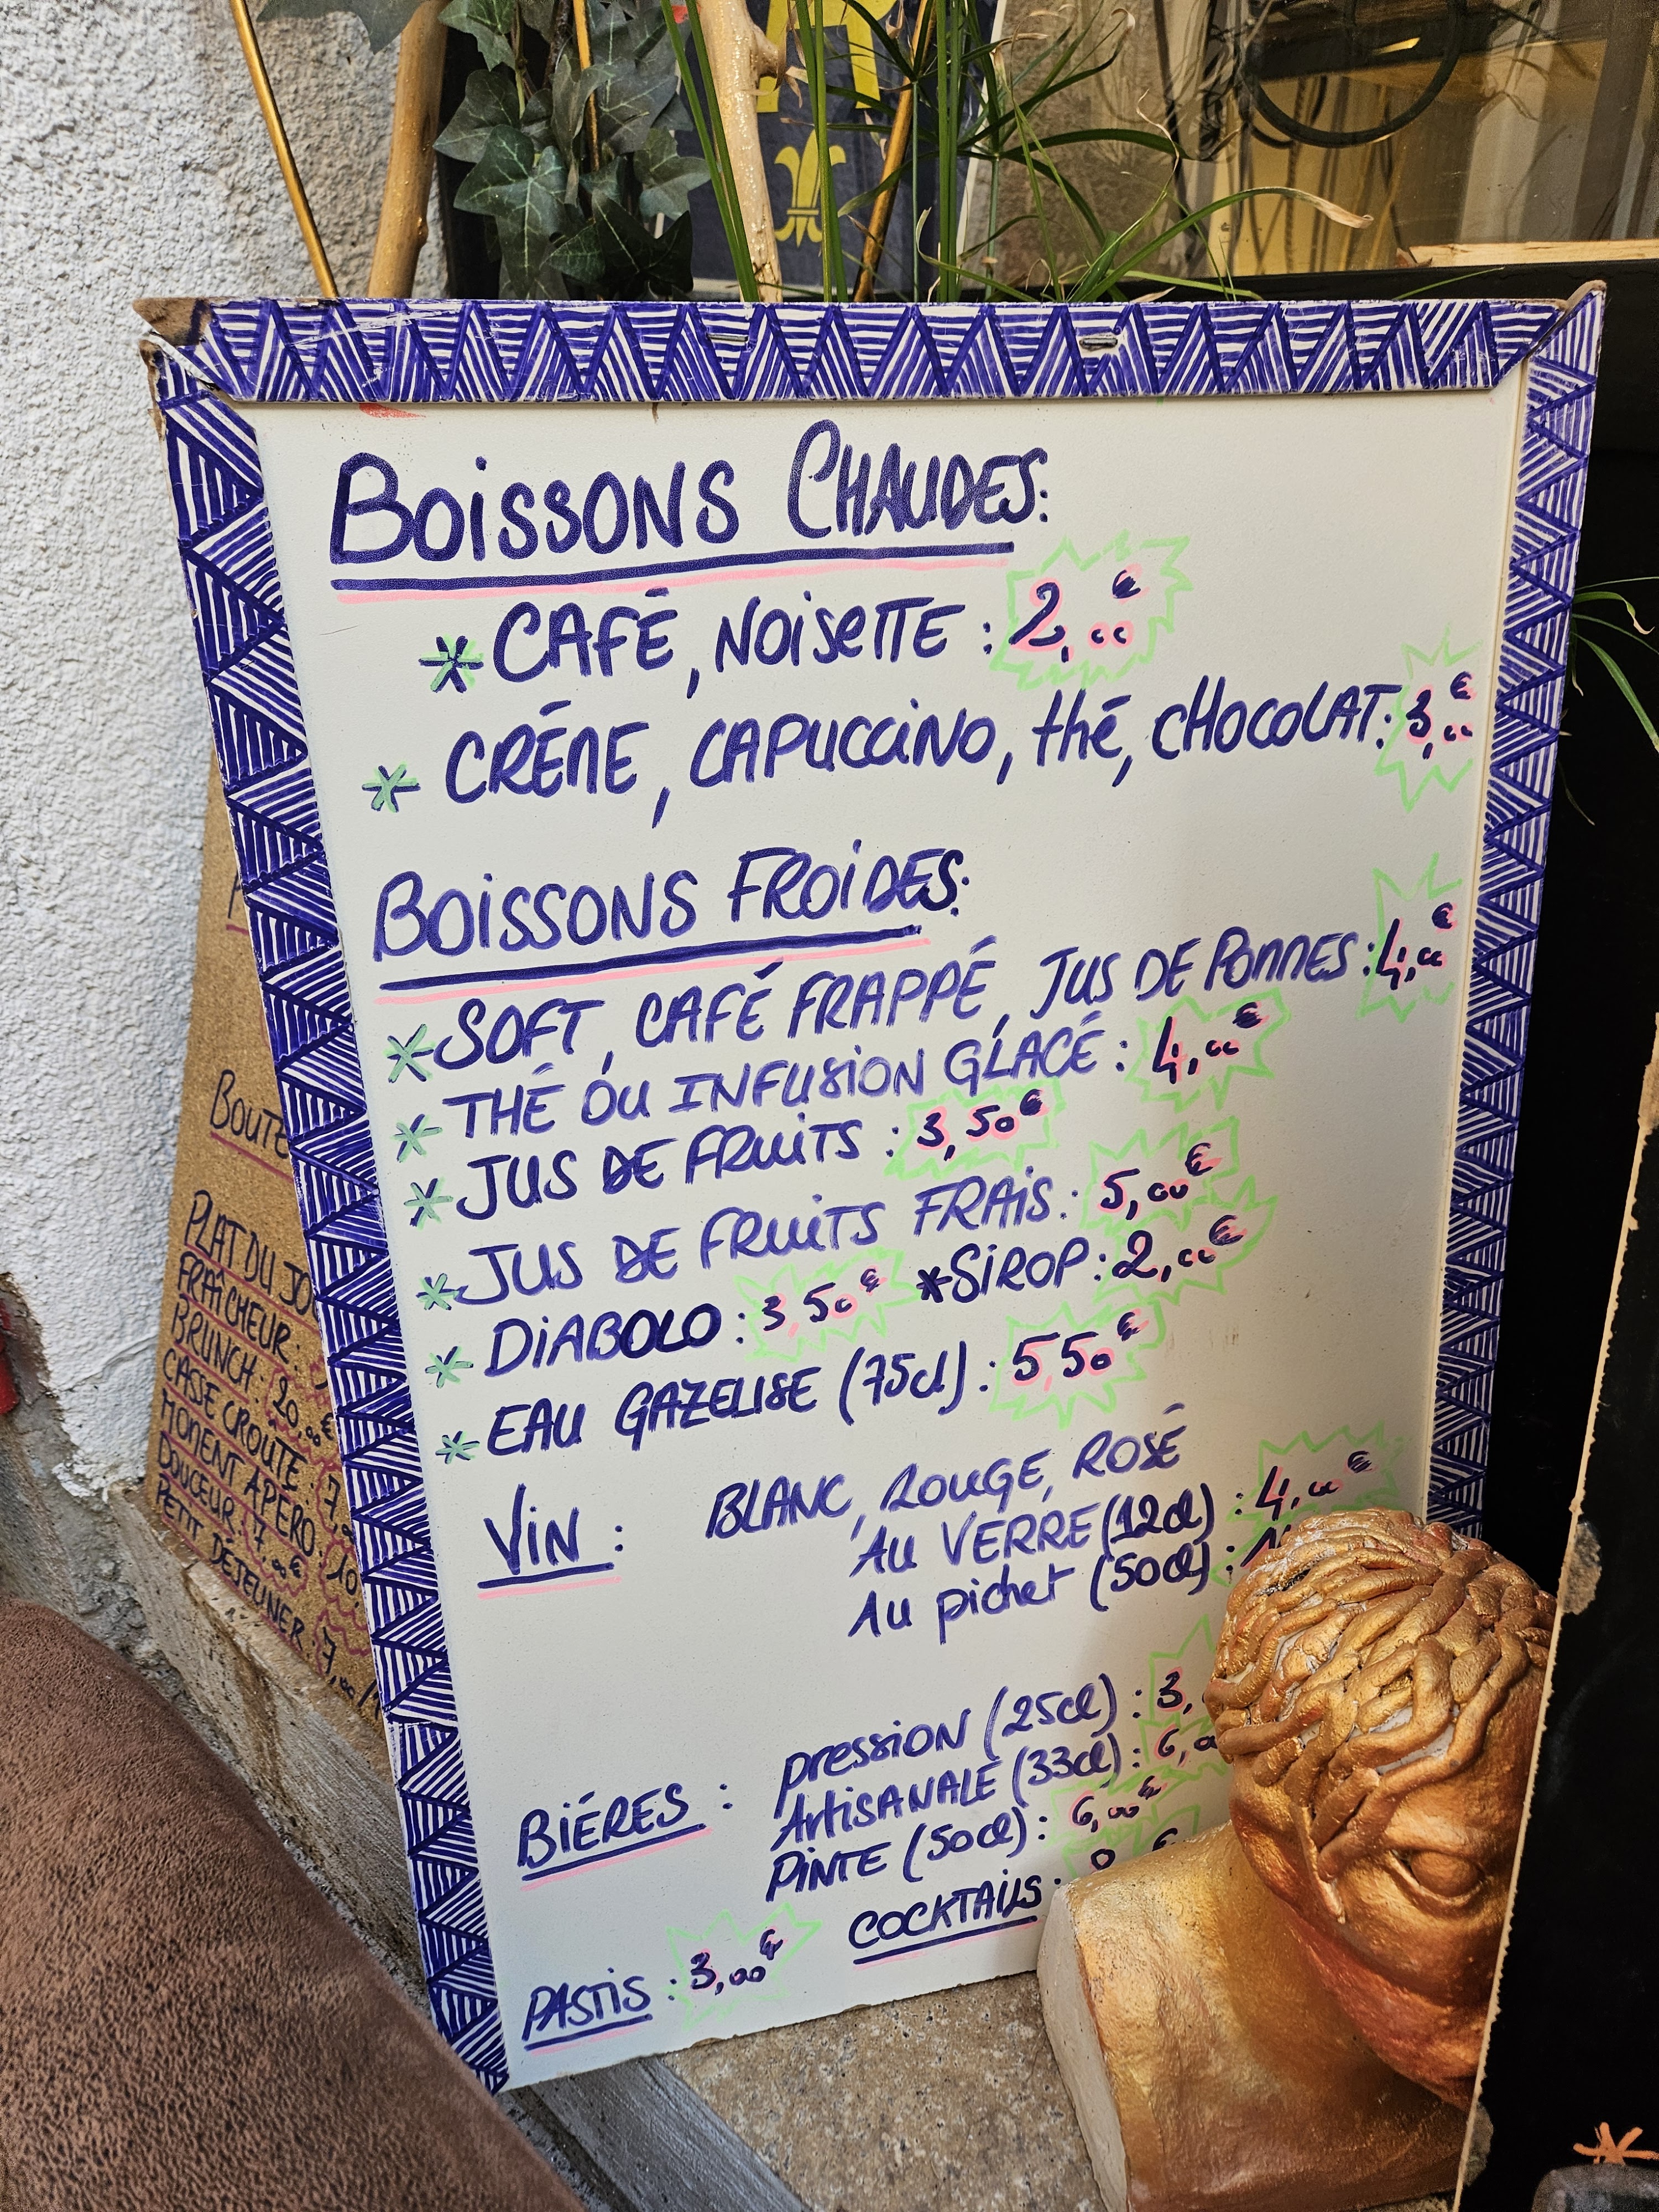 BOISSONS CHAUDES:
* CAFÉ, NOISETTE : 2,00€
* CRÉME, CAPUCCINO, thé, CHOCOLAT: 3,00€
BOISSONS FROIDES:
* SOFT, CAFÉ FRAPPÉ, JUS DE POMMES: 4,00€
* THÉ OU INFUSION GLACÉ : 4,00€
* JUS DE FRUITS : 3,50€
* JUS DE FRUITS FRAIS : 5,00€
* DIABOLO : 3,50€ * SIROP : 2,00€
* EAU GAZEUSE (75cl) : 5,50€
VIN : BLANC, ROUGE, ROSÉ
AU VERRE (12cl) : 4,00€
AU pichet (50cl) :
BIÉRES : pression (25cl) : 3,
ARTISANALE (33cl) : 6,00
PINTE (50cl) : 6,00€
COCKTAILS :
PASTIS : 3,00€
PLAT DU JO
FRAÎCHEUR :
BRUNCH : 20,00€
CASSE CROUTE : 7,
MOMENT APERO : 10,
DOUCEUR : 7,00€
PETIT DÉJEUNER : 7,00/